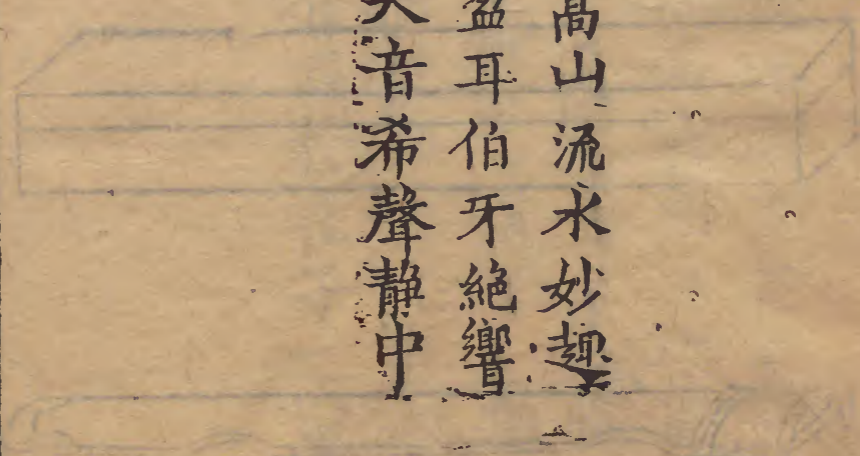 高山流水妙趣
盈耳伯牙絶響
大音希聲静中